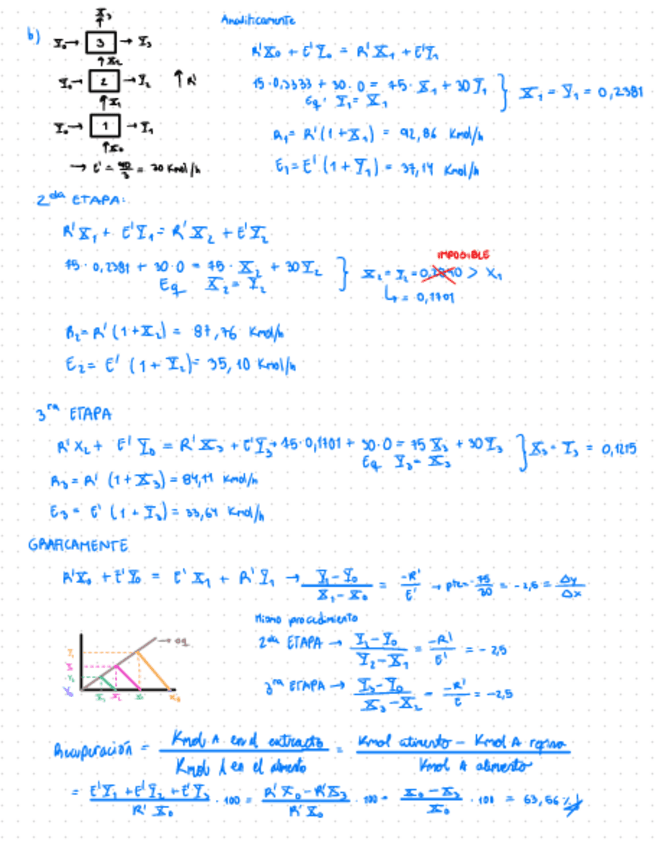 b)
X₃
Y₀→ 3 → Y₃
↑X₂
Y₀→ 2 → Y₂ ↑ R'
↑X₁
Y₀→ 1 → Y₁
↑X₀
→ E' = 90/3 = 30 Kmol/h
Analíticamente
R'X₀ + E'Y₀ = R'X₁ + E'Y₁
75·0,3333 + 30·0 = 75·X₁ + 30Y₁ } X₁ = Y₁ = 0,2381
Eq: Y₁ = X₁
R₁ = R'(1+X₁) = 92,86 Kmol/h
E₁ = E'(1+Y₁) = 37,14 Kmol/h
2da ETAPA:
R'X₁ + E'Y₁ = R'X₂ + E'Y₂
IMPOSIBLE
75·0,2381 + 30·0 = 75·X₂ + 30Y₂ } X₂ = Y₂ = > X₁
Eq X₂ = Y₂ ↳ = 0,1701
R₂ = R'(1+X₂) = 87,76 Kmol/h
E₂ = E'(1+Y₂) = 35,10 Kmol/h
3ra ETAPA
R'X₂ + E'Y₀ = R'X₃ + E'Y₃ → 75·0,1701 + 30·0 = 75X₃ + 30Y₃ } X₃ = Y₃ = 0,1215
Eq Y₃ = X₃
R₃ = R'(1+X₃) = 84,11 Kmol/h
E₃ = E'(1+Y₃) = 33,64 Kmol/h
GRAFICAMENTE
R'X₀ + E'Y₀ = E'X₁ + R'Y₁ → (Y₁-Y₀)/(X₁-X₀) = -R'/E' → pte = -75/30 = -2,5 = Δy/Δx
Mismo procedimiento
2da ETAPA → (Y₁-Y₀)/(Y₂-X₁) = -R'/E' = -2,5
3ra ETAPA → (Y₃-Y₀)/(X₃-X₂) = -R'/E = -2,5
→ eq
Y₁
Y₂
Y₃
Y₀
X₃ X₂ X₁ X₀
Recuperación = Kmol A en el extracto / Kmol A en el alimento = Kmol alimento - Kmol A refino / Kmol A alimento
= (E'Y₁ + E'Y₂ + E'Y₃)/(R'X₀) · 100 = (R'X₀ - R'X₃)/(R'X₀) · 100 = (X₀ - X₃)/X₀ · 100 = 63,56 %